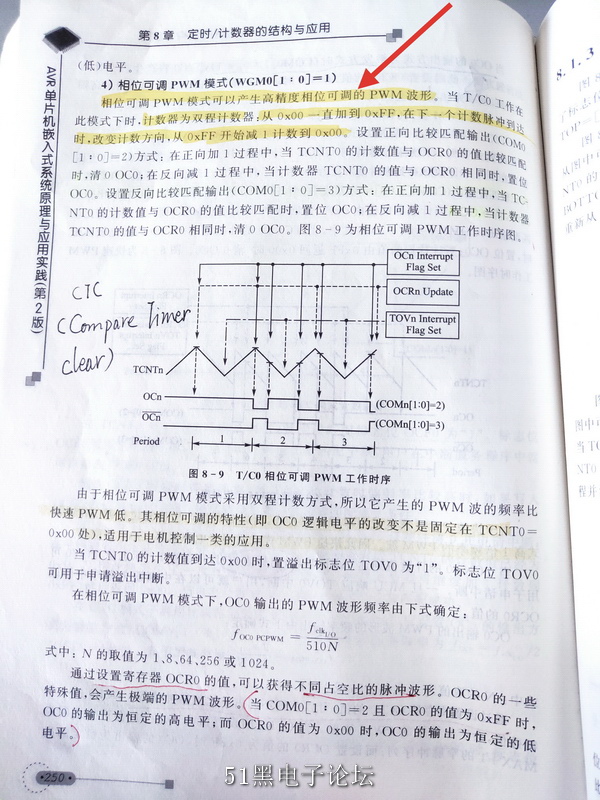 第 8 章 定时/计数器的结构与应用
(低)电平。
4) 相位可调 PWM 模式(WGM0[1:0]=1)
相位可调 PWM 模式可以产生高精度相位可调的 PWM 波形。当 T/C0 工作在
此模式下时,计数器为双程计数器:从 0x00 一直加到 0xFF,在下一个计数脉冲到达
时,改变计数方向,从 0xFF 开始减 1 计数到 0x00。设置正向比较匹配输出(COM0
[1:0]=2)方式:在正向加 1 过程中,当 TCNT0 的计数值与 OCR0 的值比较匹配
时,清 0 OC0;在反向减 1 过程中,当计数器 TCNT0 的值与 OCR0 相同时,置位
OC0。设置反向比较匹配输出(COM0[1:0]=3)方式:在正向加 1 过程中,当 TC-
NT0 的计数值与 OCR0 的值比较匹配时,置位 OC0;在反向减 1 过程中,当计数器
TCNT0 的值与 OCR0 相同时,清 0 OC0。图 8-9 为相位可调 PWM 工作时序图。
AVR 单片机嵌入式系统原理与应用实践(第2版)
CTC
(Compare Timer
clear)
OCn Interrupt
Flag Set
OCRn Update
TOVn Interrupt
Flag Set
TCNTn
OCn
(COMn[1:0]=2)
OCn
(COMn[1:0]=3)
Period
1
2
3
图 8-9 T/C0 相位可调 PWM 工作时序
由于相位可调 PWM 模式采用双程计数方式,所以它产生的 PWM 波的频率比
快速 PWM 低。其相位可调的特性(即 OC0 逻辑电平的改变不是固定在 TCNT0=
0x00 处),适用于电机控制一类的应用。
当 TCNT0 的计数值到达 0x00 时,置溢出标志位 TOV0 为“1”。标志位 TOV0
可用于申请溢出中断。
在相位可调 PWM 模式下,OC0 输出的 PWM 波形频率由下式确定:
f OC0 PCPWM = f clk I/O / 510N
式中:N 的取值为 1、8、64、256 或 1024。
通过设置寄存器 OCR0 的值,可以获得不同占空比的脉冲波形。OCR0 的一些
特殊值,会产生极端的 PWM 波形。当 COM0[1:0]=2 且 OCR0 的值为 0xFF 时,
OC0 的输出为恒定的高电平;而 OCR0 的值为 0x00 时,OC0 的输出为恒定的低
电平。
·250·
51黑电子论坛
8.1.3